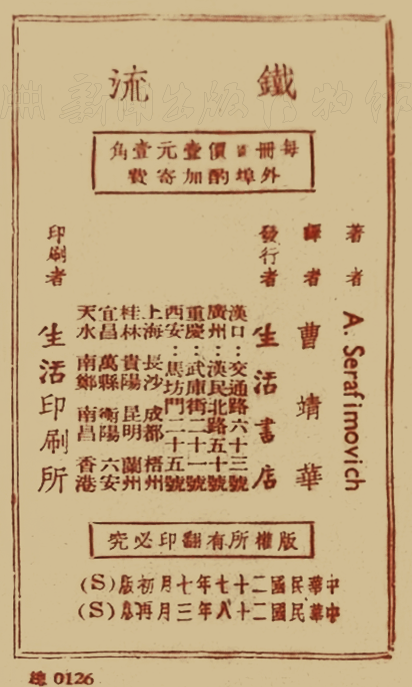 鐵流
每冊實價壹元壹角
外埠酌加寄費
著者 A. Serafimovich
譯者 曹靖華
發行者 生活書店
漢口：交通路六十三號
廣州：漢民北路五十號
重慶：武庫街二十一號
西安：馬坊門二十五號
上海 長沙 成都 梧州
桂林 貴陽 昆明 蘭州
宜昌 萬縣 衡陽 六安
天水 南鄭 南昌 香港
印刷者 生活印刷所
版權所有翻印必究
中華民國二十七年七月初版(S)
中華民國二十八年三月再版(S)
總 0126